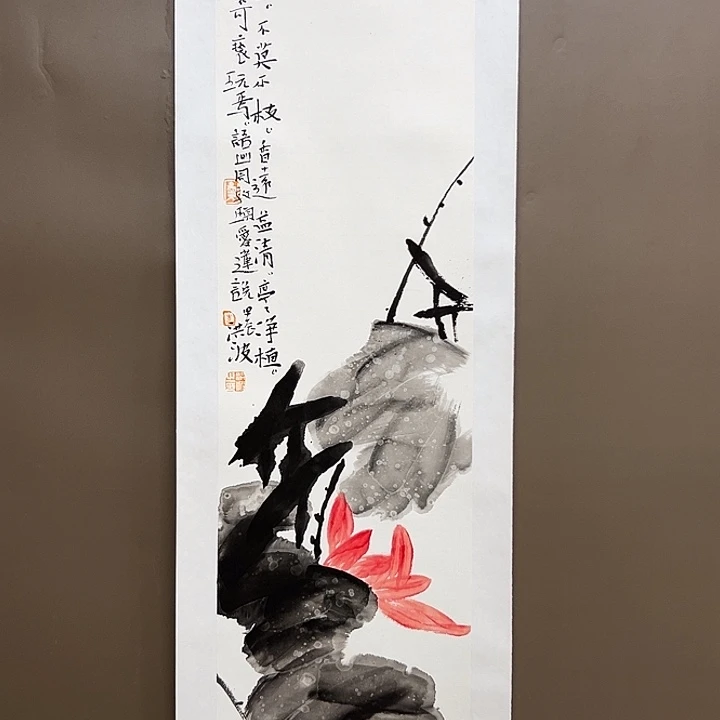 不蔓不枝，香遠益清，亭亭淨植，
可褻玩焉，語出周敦頤愛蓮說
甲辰
洪波